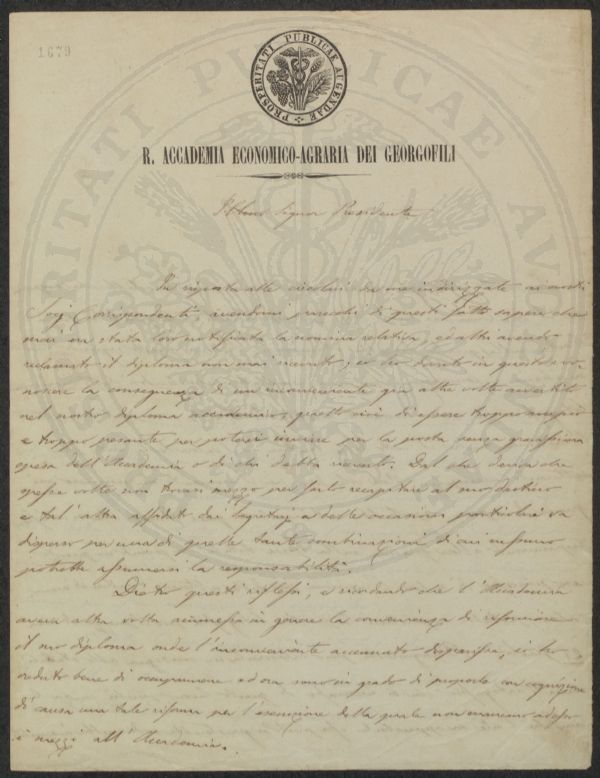 1679
PROSPERITATI PUBLICAE AUGENDAE
R. ACCADEMIA ECONOMICO-AGRARIA DEI GEORGOFILI
Signor Presidente
In risposta alle circolari da me indirizzate ai nostri
Socj Corrispondenti, avendomi parecchi di questi fatto sapere che
mai era stata loro notificata la nomina relativa, ed altri avendo
reclamato il diploma non mai ricevuto; io ho dovuto in questo
la conseguenza di un inconveniente già altre volte avvertito
nel nostro diploma accademico, quello cioè di essere troppo ampio
e troppo pesante per potersi inviare per la posta senza gravissima
spesa dell'Accademia o di chi debba riceverlo. Dal che deriva che
spesse volte non trovasi mezzo per farlo recapitare al suo destino
e tal'altra affidato dai Segretarj a delle occasioni particolari va
disperso per una di quelle tante combinazioni di cui nessuno
potrebbe assumersi la responsabilità.
Dietro questi riflessi, e ricordando che l'Accademia
aveva altra volta ammessa in genere la convenienza di riformare
il suo diploma onde l'inconveniente accennato disparisse, io ho
creduto bene di occuparmene ed ora sono in grado di proporre con cognizione
di causa una tale riforma per l'esecuzione della quale non mancano adesso
i mezzi all'Accademia.